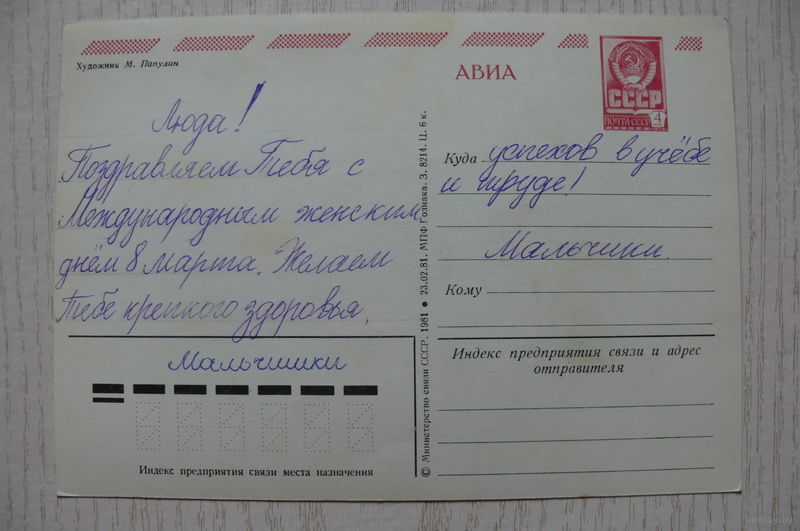 Художник М. Папулин
АВИА
СССР
ПОЧТА СССР 4
Люда!
Поздравляем Тебя с
Международным женским
днём 8 марта. Желаем
Тебе крепкого здоровья,
Мальчишки
Индекс предприятия связи места назначения
© Министерство связи СССР, 1981 • 23.02.81. МПФ Гознака. З. 8214. Ц. 6 к.
Куда успехов в учёбе
и труде!
Мальчики.
Кому
Индекс предприятия связи и адрес
отправителя